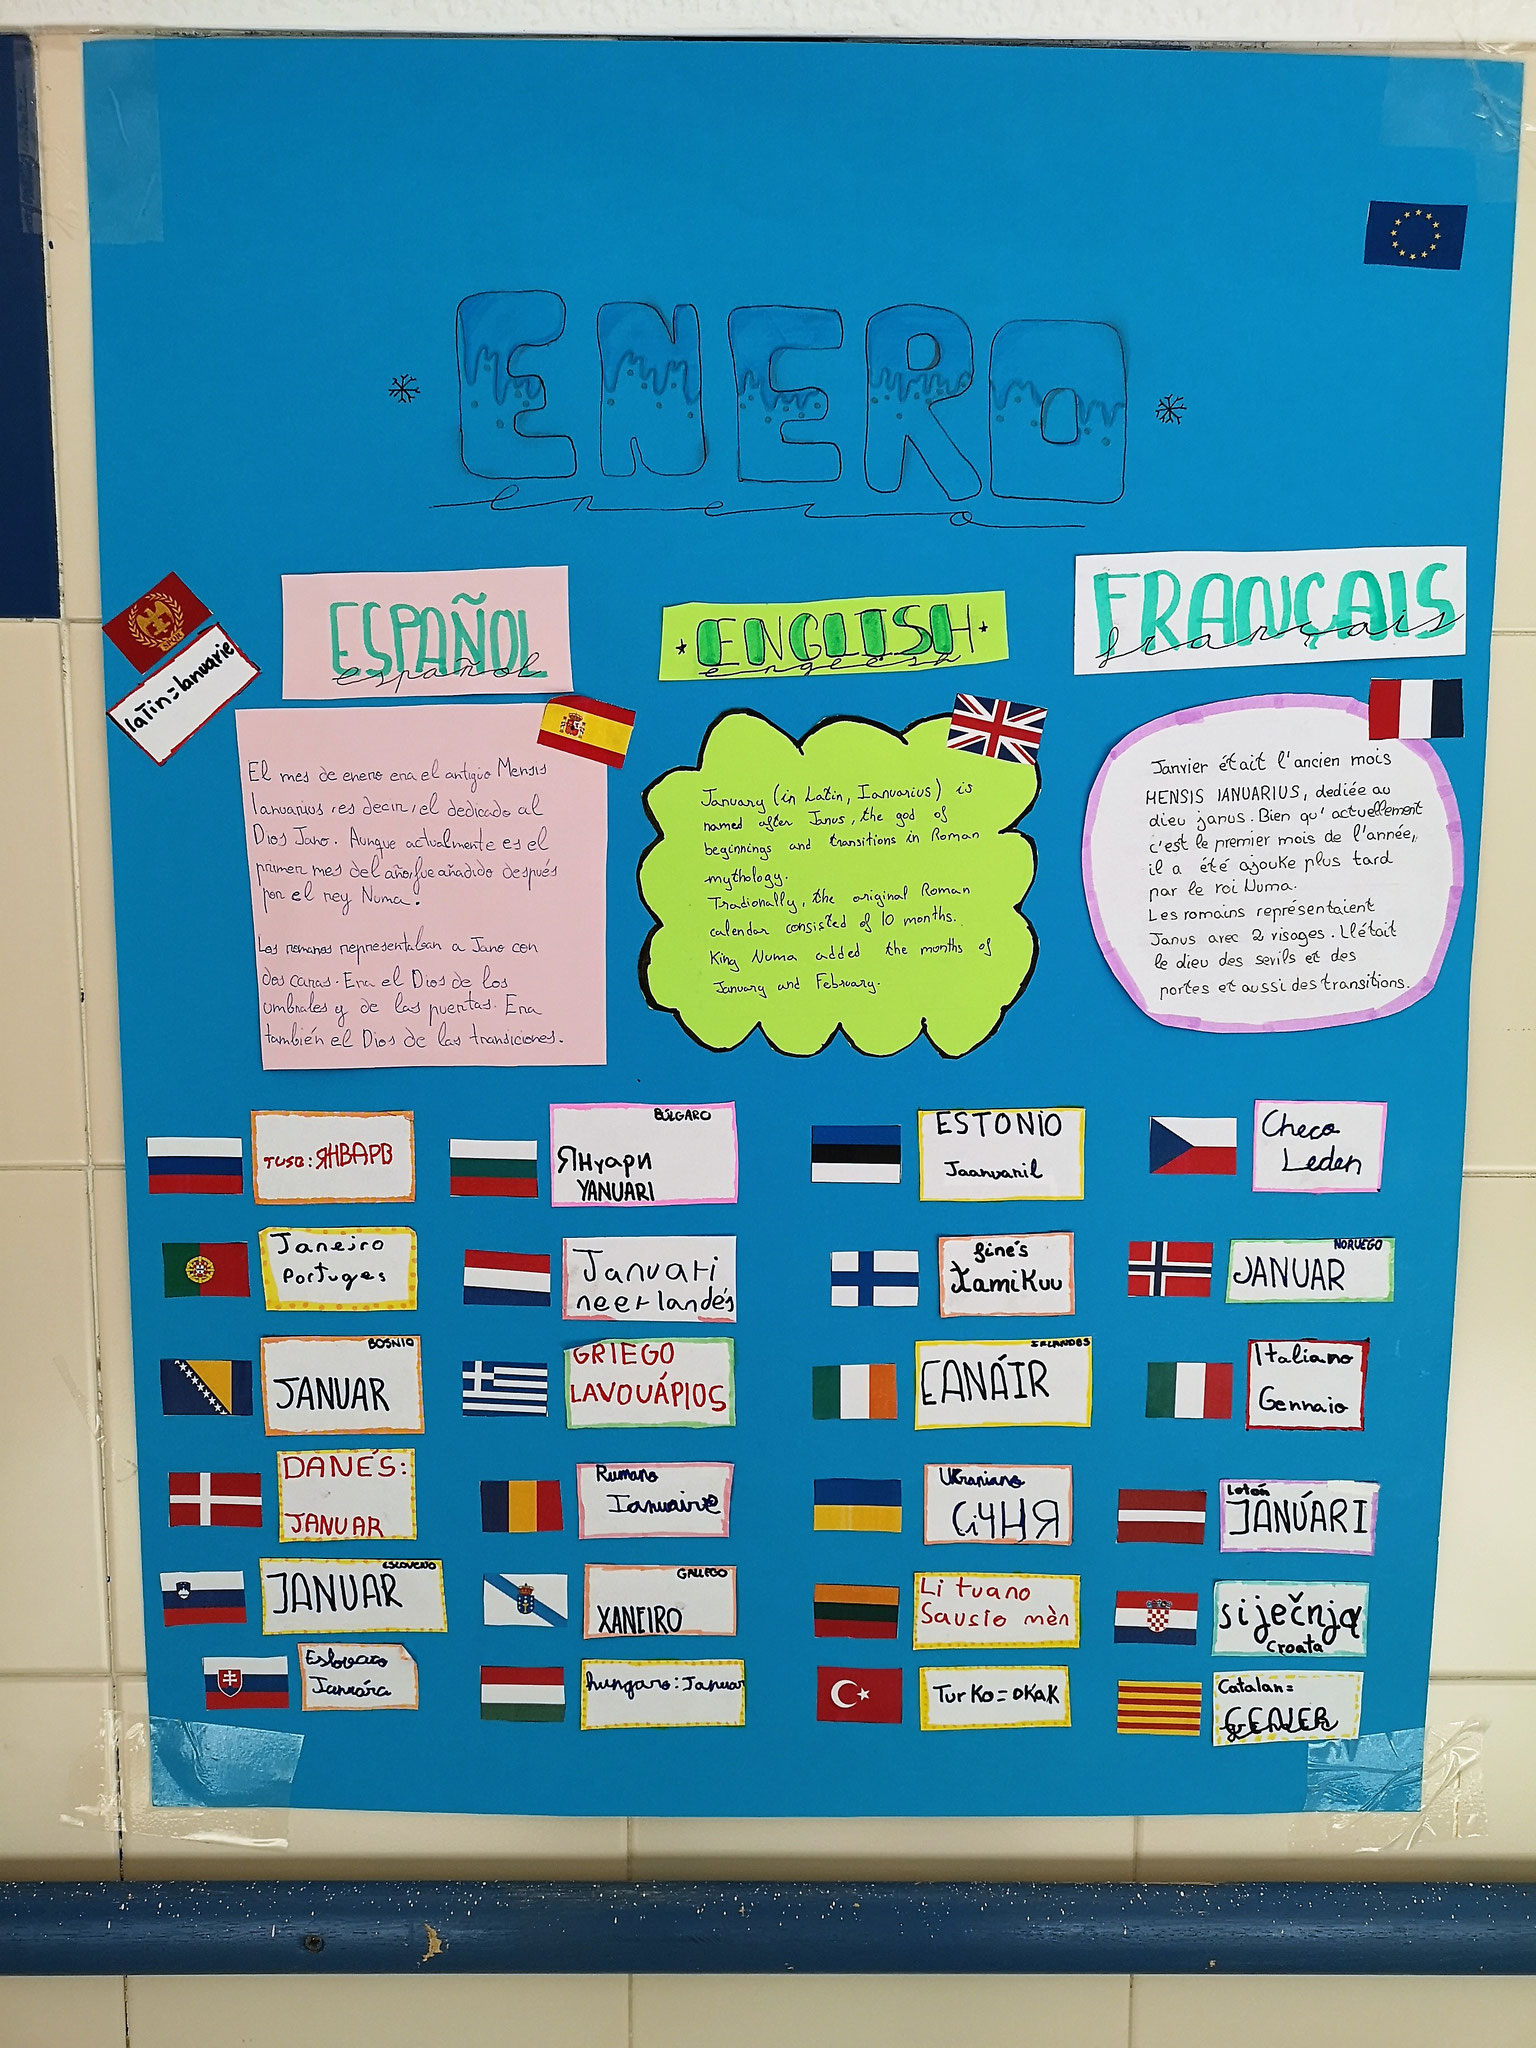 ENERO
enero
latin=Ianuarie
SPQR
ESPAÑOL
español
ENGLISH
english
FRANÇAIS
français
El mes de enero era el antiguo Mensis
Ianuarius, es decir, el dedicado al
Dios Jano. Aunque actualmente es el
primer mes del año, fue añadido después
por el rey Numa.
Los romanos representaban a Jano con
dos caras. Era el Dios de los
umbrales y de las puertas. Era
también el Dios de las trandiciones.
January (in Latin, Ianuarius) is
named after Janus, the god of
beginnings and transitions in Roman
mythology.
Tradionally, the original Roman
calendar consisted of 10 months.
King Numa added the months of
January and February.
Janvier était l'ancien mois
MENSIS IANUARIUS, dediée au
dieu janus. Bien qu'actuellement
c'est le premier mois de l'année,
il a été ajouke plus tard
par le roi Numa.
Les romains représentaient
Janus avec 2 visages. Ilétait
le dieu des sevils et des
portes et aussi des transitions.
ЯНВАРВ
BÚLGARO
ЯНуари
YANUARI
ESTONIO
Jaanuanil
Checo
Leden
Janeiro
Portuges
Januari
neerlandés
finés
Tamikuu
NORUEGO
JANUAR
BOSNIO
JANUAR
GRIEGO
LAVOUÁPIOS
IRLANDES
EANÁIR
Italiano
Gennaio
DANÉS:
JANUAR
Rumano
Ianuairie
Ukraniano
Січня
Letón
JANÚARI
ESLOVENO
JANUAR
GALLEGO
XANEIRO
Lituano
Sausio mèn
siječnja
croata
Eslovaco
Januára
hungaro: Januar
Turko=OKAK
Catalan=
GENER